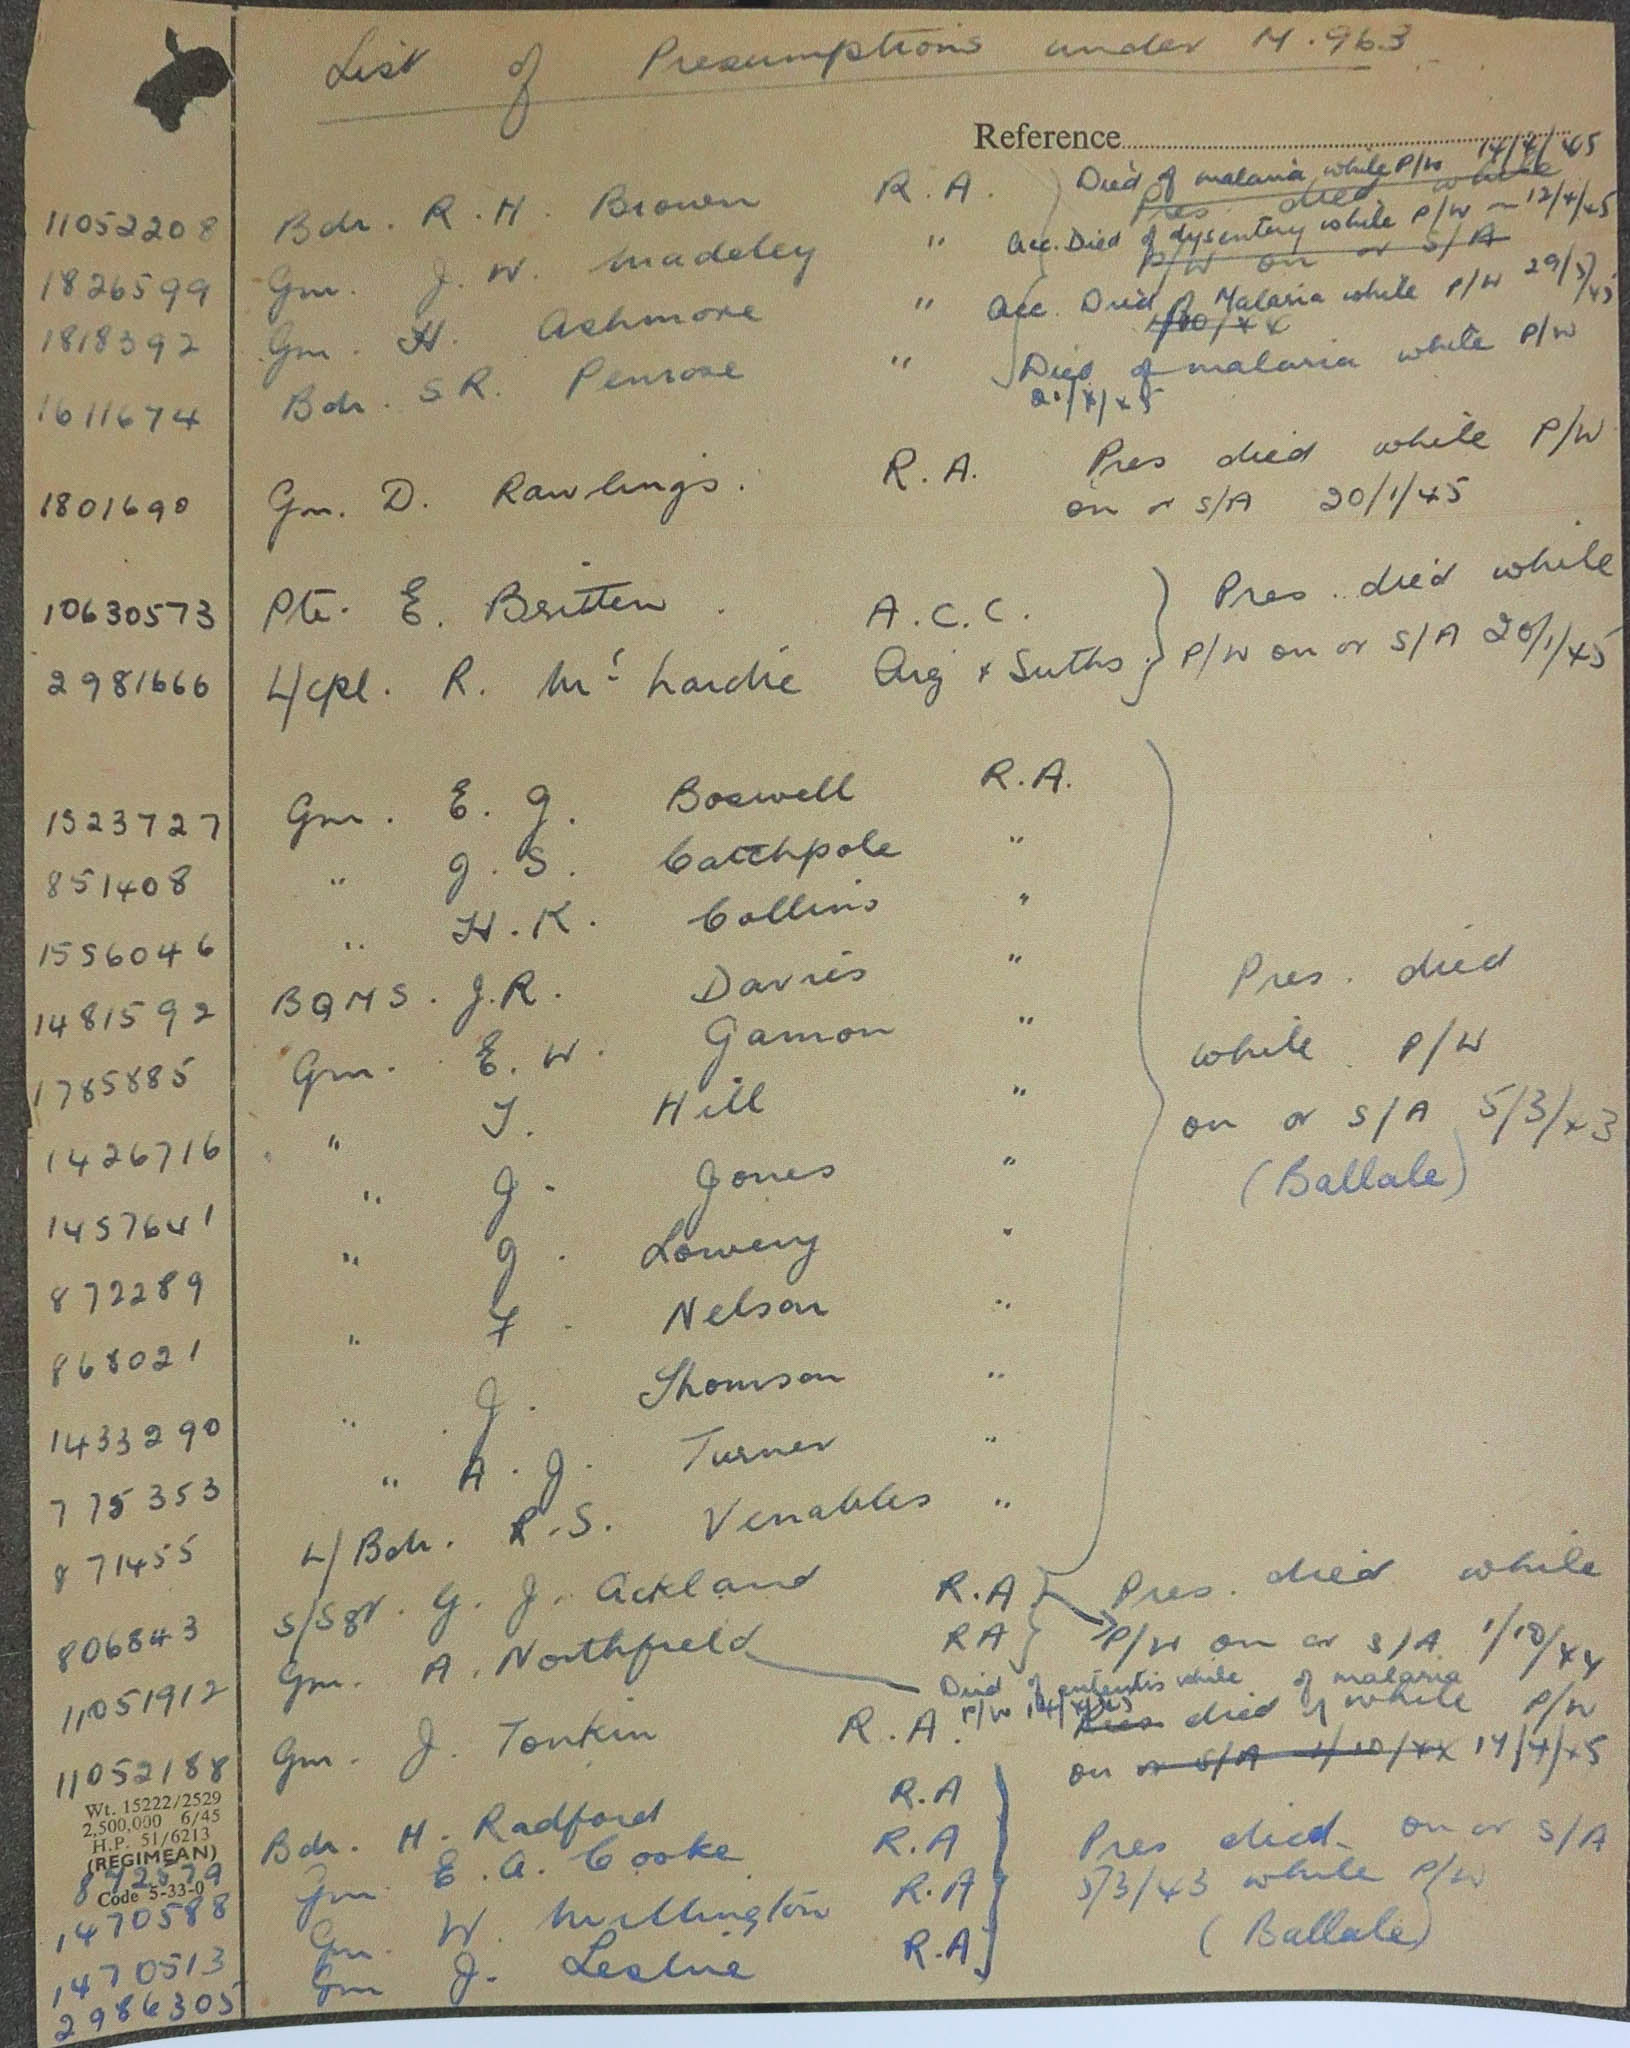 List of Presumptions under M.963
Reference
11052208 Bdr. R. H. Brown R.A. Died of malaria while P/W 14/4/45
Pres. died while
1826599 Gnr. J. W. Madeley " Acc. Died of dysentery while P/W 12/4/45
P/W on or S/A
1818392 Gnr. H. Ashmore " Acc. Died of Malaria while P/W 29/3/45
1/10/44
1611674 Bdr. S R. Penrose " Died of malaria while P/W
1801690 Gnr. D. Rawlings. R.A. Pres died while P/W
on or S/A 20/1/45
10630573 Pte. E. Britten. A.C.C. Pres. died while
2981666 L/cpl. R. Mc Lardie Arg & Suths. P/W on or S/A 20/1/45
1523727 Gnr. E. G. Boswell R.A.
851408 " G. S. Catchpole "
1556046 " H. K. Collins "
1481592 BQMS. J.R. Davies " Pres. died
1785885 Gnr. E. W. Gamon " while P/W
1426716 " T. Hill " on or S/A 5/3/43
1457641 " J. Jones " (Ballale)
872289 " G. Lowery "
868021 " F. Nelson "
1433290 " J. Thomson "
775353 " A. J. Turner "
871455 L/Bdr. R.S. Venables "
806843 S/Sgt. G. J. Ackland R.A Pres. died while
11051912 Gnr. A. Northfield RA P/W on or S/A 1/10/44
Died of while of malaria
P/W
11052188 Gnr. J. Tonkin R.A. Pres died while P/W
on or S/A 1/10/44 14/4/45
Wt. 15222/2529
2,500,000 6/45
H.P. 51/6213
(REGIMEAN)
Code 5-33-0
842579 Bdr. H. Radford R.A
1470588 Gnr E. A. Cooke R.A Pres died on or S/A
1470513 Gnr. W. Millington R.A 5/3/43 while P/W
2986305 Gnr J. Leslie R.A (Ballale)